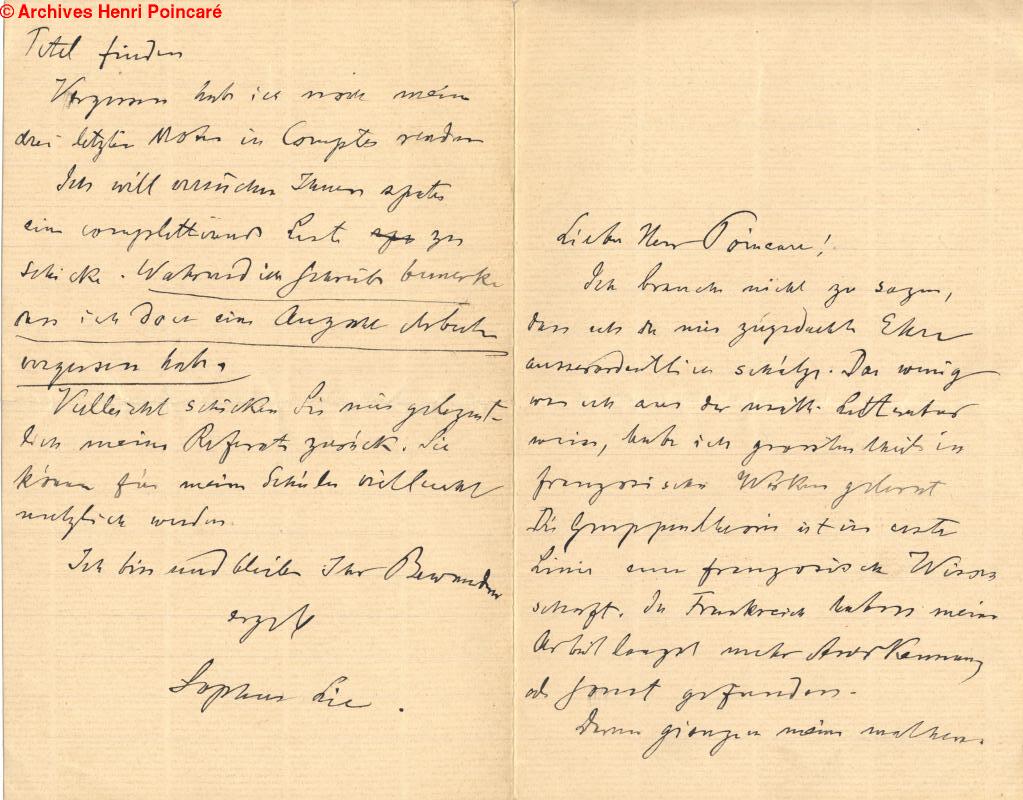 © Archives Henri Poincaré
Titel finden
Vergessen habe ich noch meine
drei letzten Noten in Comptes rendus
Ich will versuchen Ihnen später
eine Liste zu
schicke. Während ich schreibe bemerke
dass ich doch eine Anzahl Arbeiten
vergessen habe.
Vielleicht schicken Sie mir gelegent-
lich meine Referate zurück. Sie
können für meine Schüler vielleicht
nützlich werden.
Ich bin und bleibe Ihr Bewunderer
Sophus Lie.
Lieber Herr Poincare!
Ich brauche nicht zu sagen,
dass ich die mir zugedachte Ehre
ausserordentlich schätze. Das wenig
was ich aus der math. Litteratur
weiss, habe ich grösstentheils in
französischen Werken gelernt
Die Gruppentheorie ist in erste
Linie eine französische Wissen
schaft. In Frankreich haben meine
Arbeit längst mehr Anerkennung
als sonst gefunden.
Darum giengen meine mathem.